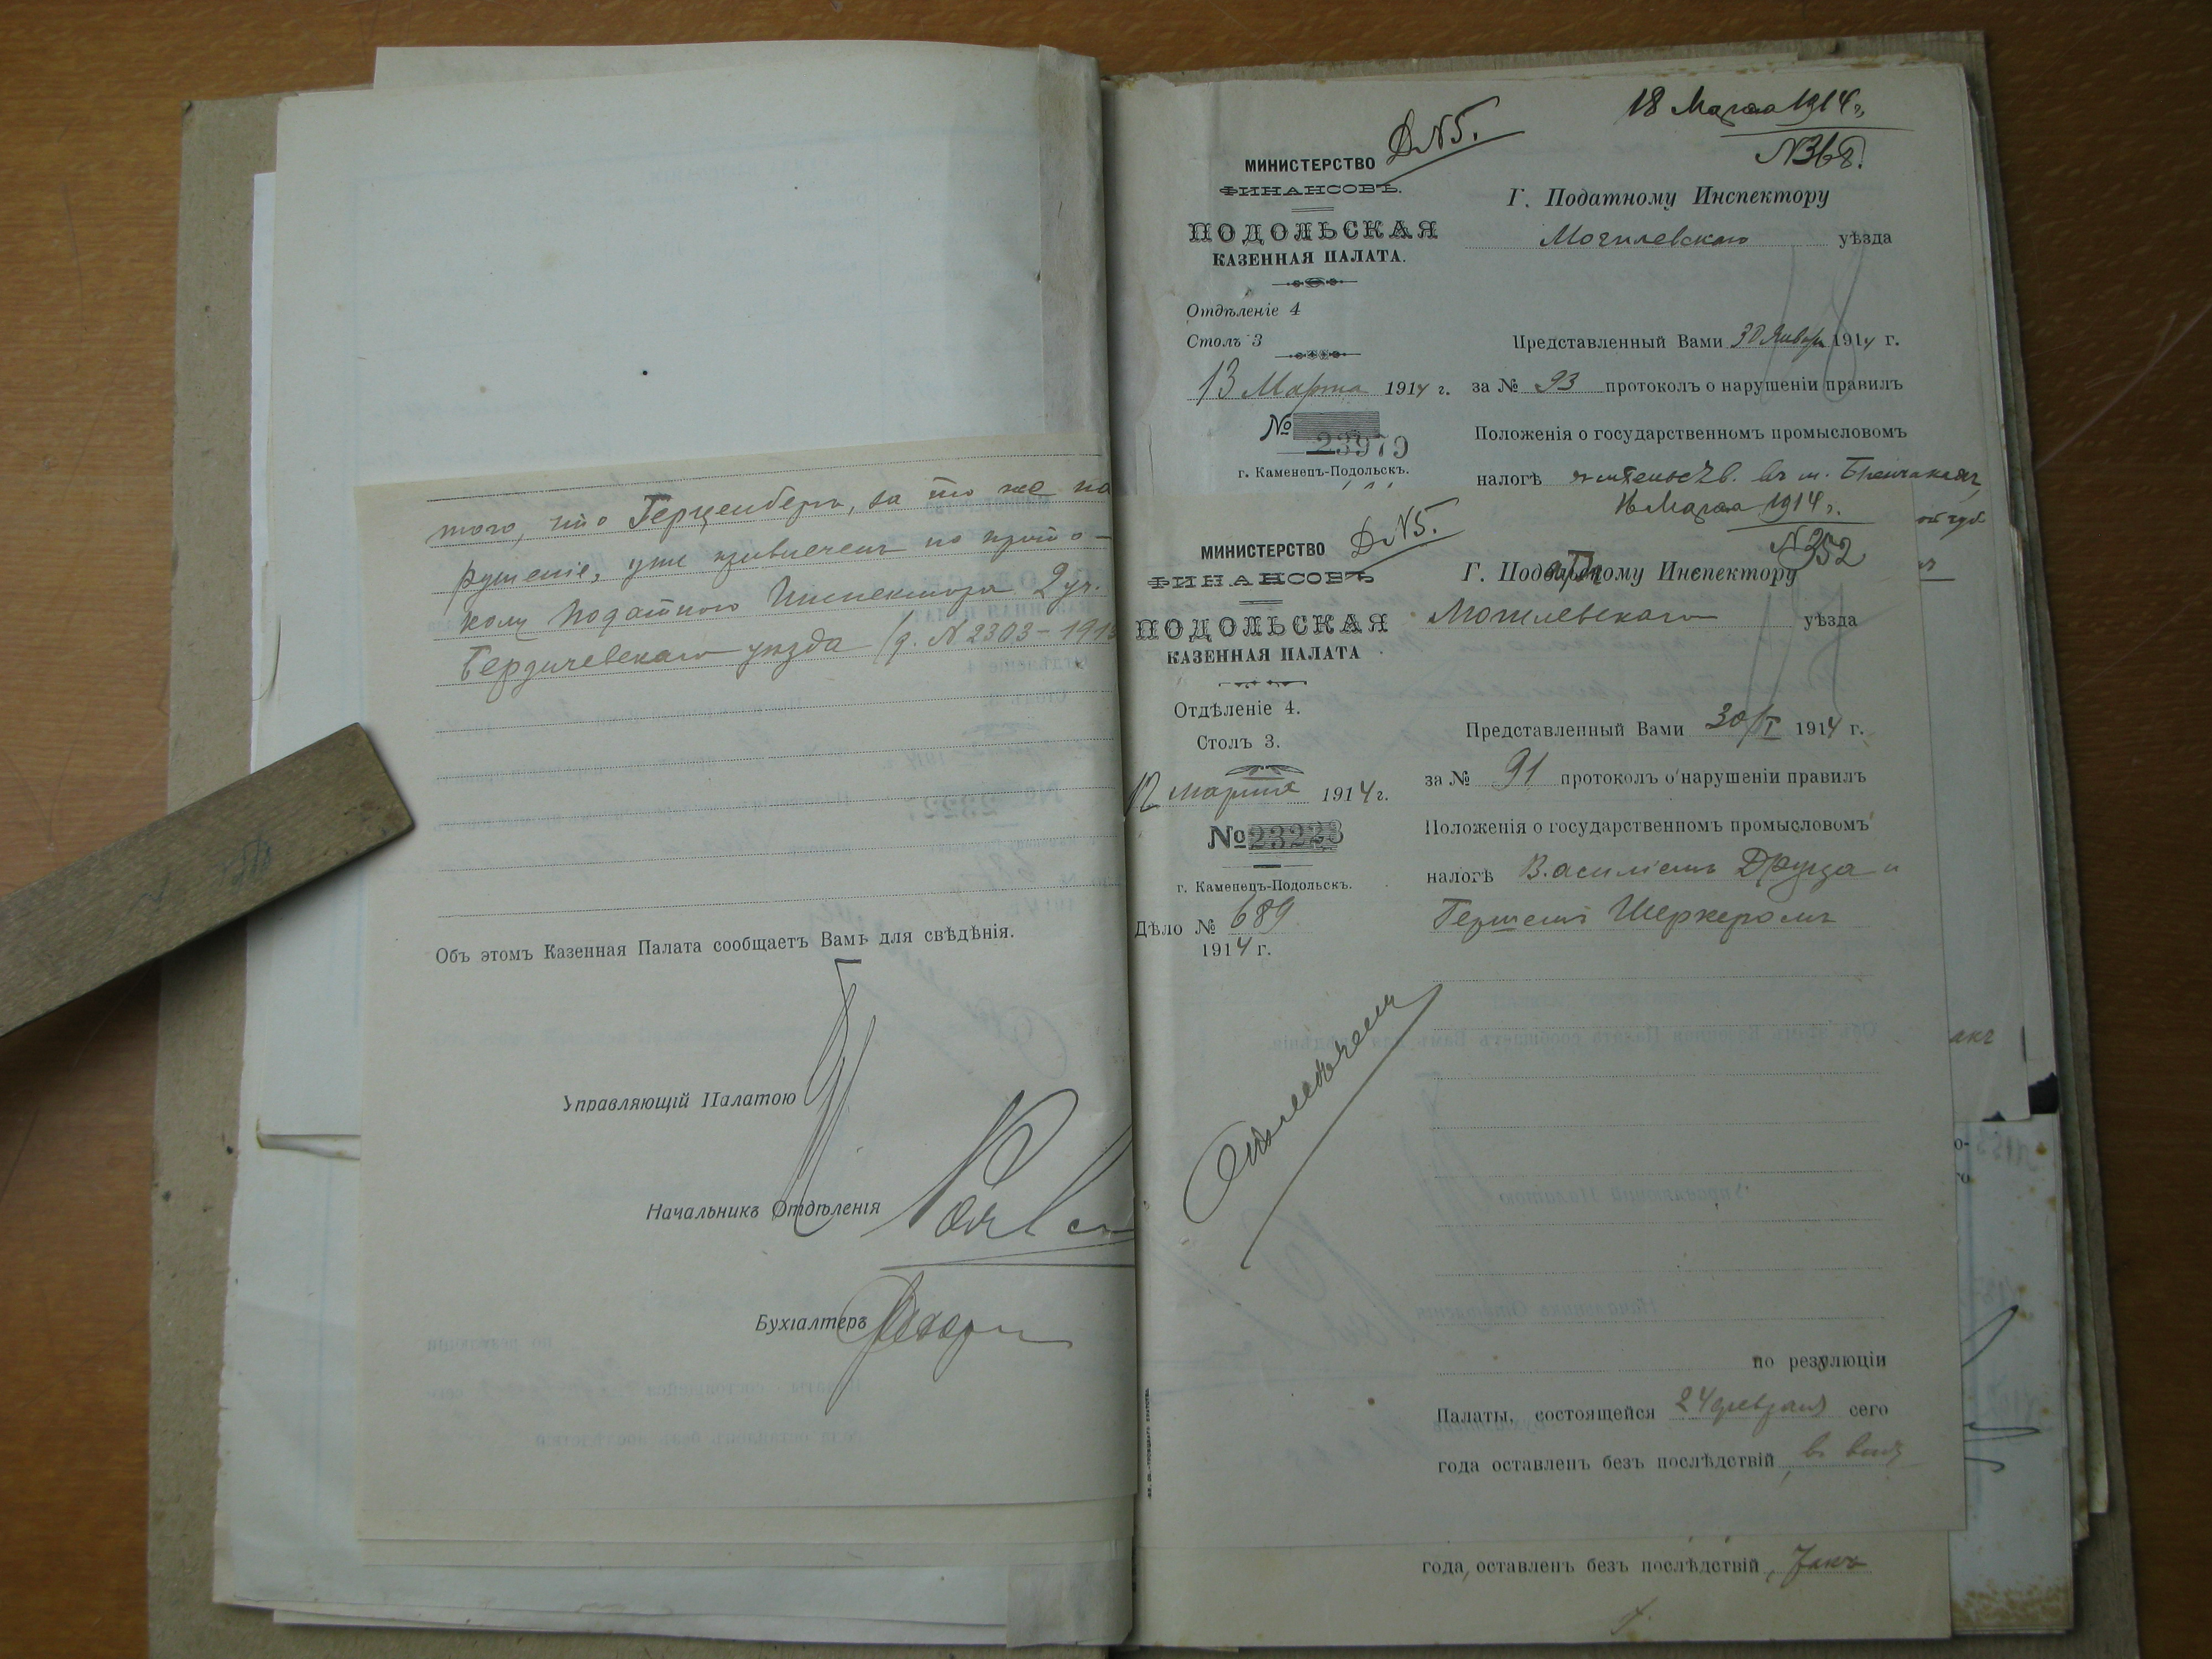 того, что Герценберг, за то же на
рушеніе, уже привлечен по прото-
колу Податного Инспектора 2 уч.
Бердичевскаго уѣзда (д. № 2303-1913
Объ этомъ Казенная Палата сообщаетъ Вамъ для свѣдѣнія.
Управляющій Палатою
Начальникъ Отдѣленія
Бухгалтеръ
18 Марта 1914 г.
№ 368.
Д. № 5.
МИНИСТЕРСТВО
ФИНАНСОВЪ.
ПОДОЛЬСКАЯ
КАЗЕННАЯ ПАЛАТА.
Отдѣленіе 4
Столъ 3
13 Марта 1914 г.
№ 23979
г. Каменецъ-Подольскъ.
Г. Податному Инспектору
Могилевскаго уѣзда
Представленный Вами 30 Январ 1914 г.
за № 93 протоколъ о нарушеніи правилъ
Положенія о государственномъ промысловомъ
налогѣ
16 Марта 1914 г.
№ 352
Д. № 5.
МИНИСТЕРСТВО
ФИНАНСОВЪ
ПОДОЛЬСКАЯ
КАЗЕННАЯ ПАЛАТА
Отдѣленіе 4.
Столъ 3.
12 марта 1914 г.
№ 23223
г. Каменецъ-Подольскъ.
Дѣло № 689
1914 г.
Г. Податному Инспектору
Могилевскаго уѣзда
Представленный Вами 30/I 1914 г.
за № 91 протоколъ о нарушеніи правилъ
Положенія о государственномъ промысловомъ
налогѣ Василіемъ Друзда и
Гершемъ Шеркеромъ
по резулюціи
Палаты, состоящейся 24 февраля сего
года оставленъ безъ послѣдствій, въ виду
года, оставленъ безъ послѣдствій, такъ